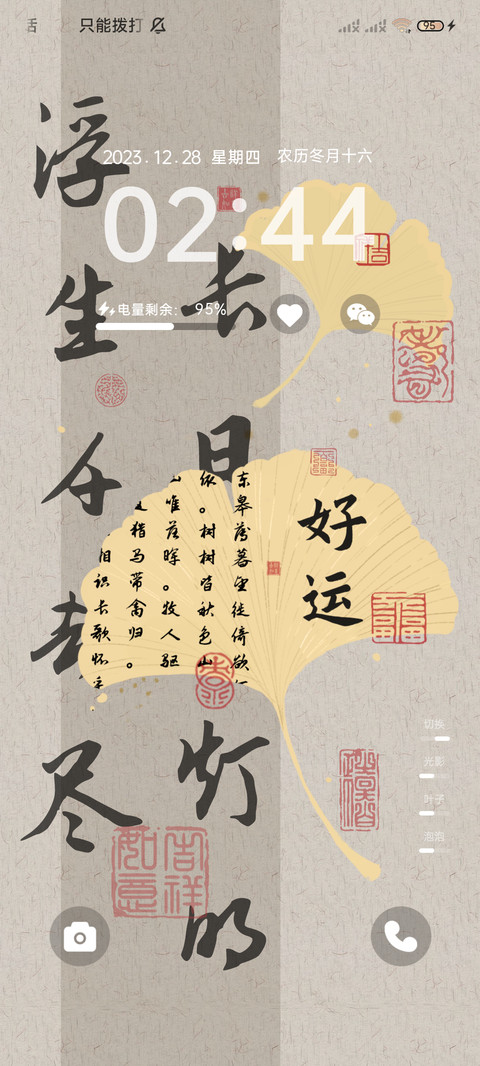 只能拨打
95
2023.12.28 星期四 农历冬月十六
02:44
电量剩余: 95%
长日灯明
浮生千劫尽
好运
东皋薄暮望徙倚欲
依。树树皆秋色山
唯落晖。牧人驱
猎马带禽归。
相识长歌怀采
吉祥如意
切换
光影
叶子
泡泡